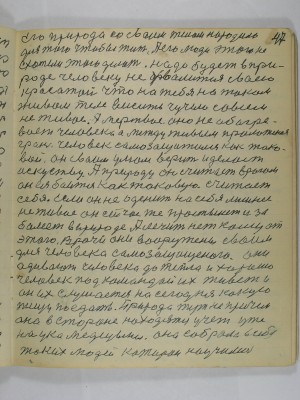 47
его природа со своим телом народила
для того чтобы жить, А его люди этого не
хотели этого делать. надо будет в при-
роде человеку не хвалится своею
красатой что на тебя на таком
живом теле висить чужим совсем
не живое. А мертвое оно не обагре-
вает человека а между живым
гран. человек самозащитник как тако-
вой. он своим умом верит и делает
искуству. А природу он считает врагом
он ея баится как таковую считает
себя. если он не оденит на себя лишнее
не живое он сейчас же простынет и за
балеет в природе А лечить нет кому от
этого. врачи они вооружены своим
для человека самозащищеного. они
адивают человека до тепла и хорошо
человек под командой их живет и
он их слушается на сегодня какую
пищу поедать. Природа тут не причем
она в стороне находится учет уже
наука медецына. она собрала в себе
таких людей которая научила